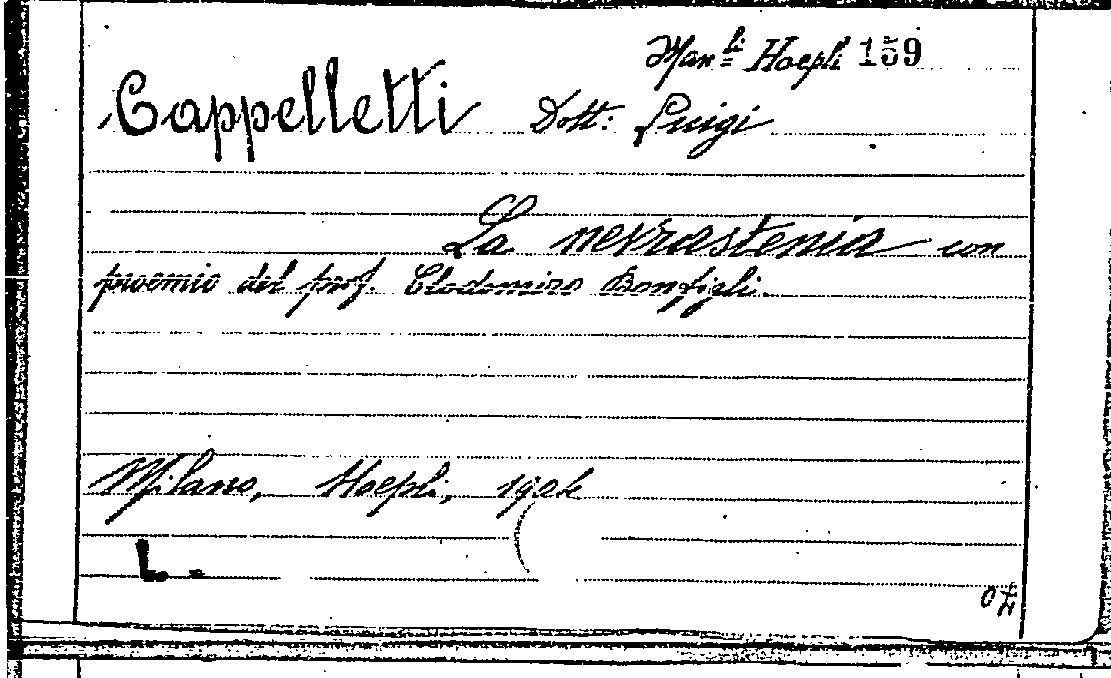 Man.li Hoepli 159
Cappelletti Dott: Luigi
La nevrastenia con
proemio del prof. Clodomiro Bonfigli.
Milano, Hoepli, 1904
L.-